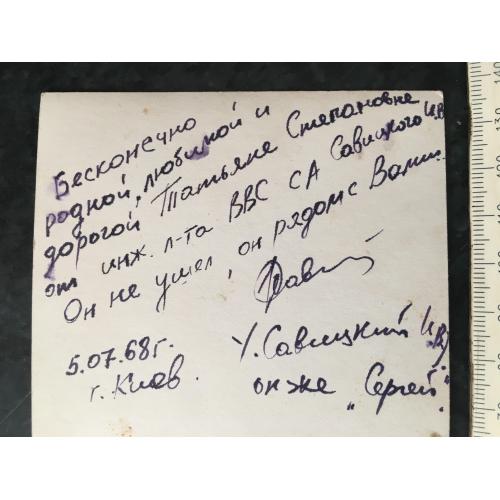 Бесконечно
родной, любимой и
дорогой Татьяне Степановне
от инж. л-та ВВС СА Савицкого И.В.
Он не ушел, он рядом с Вами.
5.07.68 г.
г. Киев.
/. Савицкий И.В/
он же „Сергей".